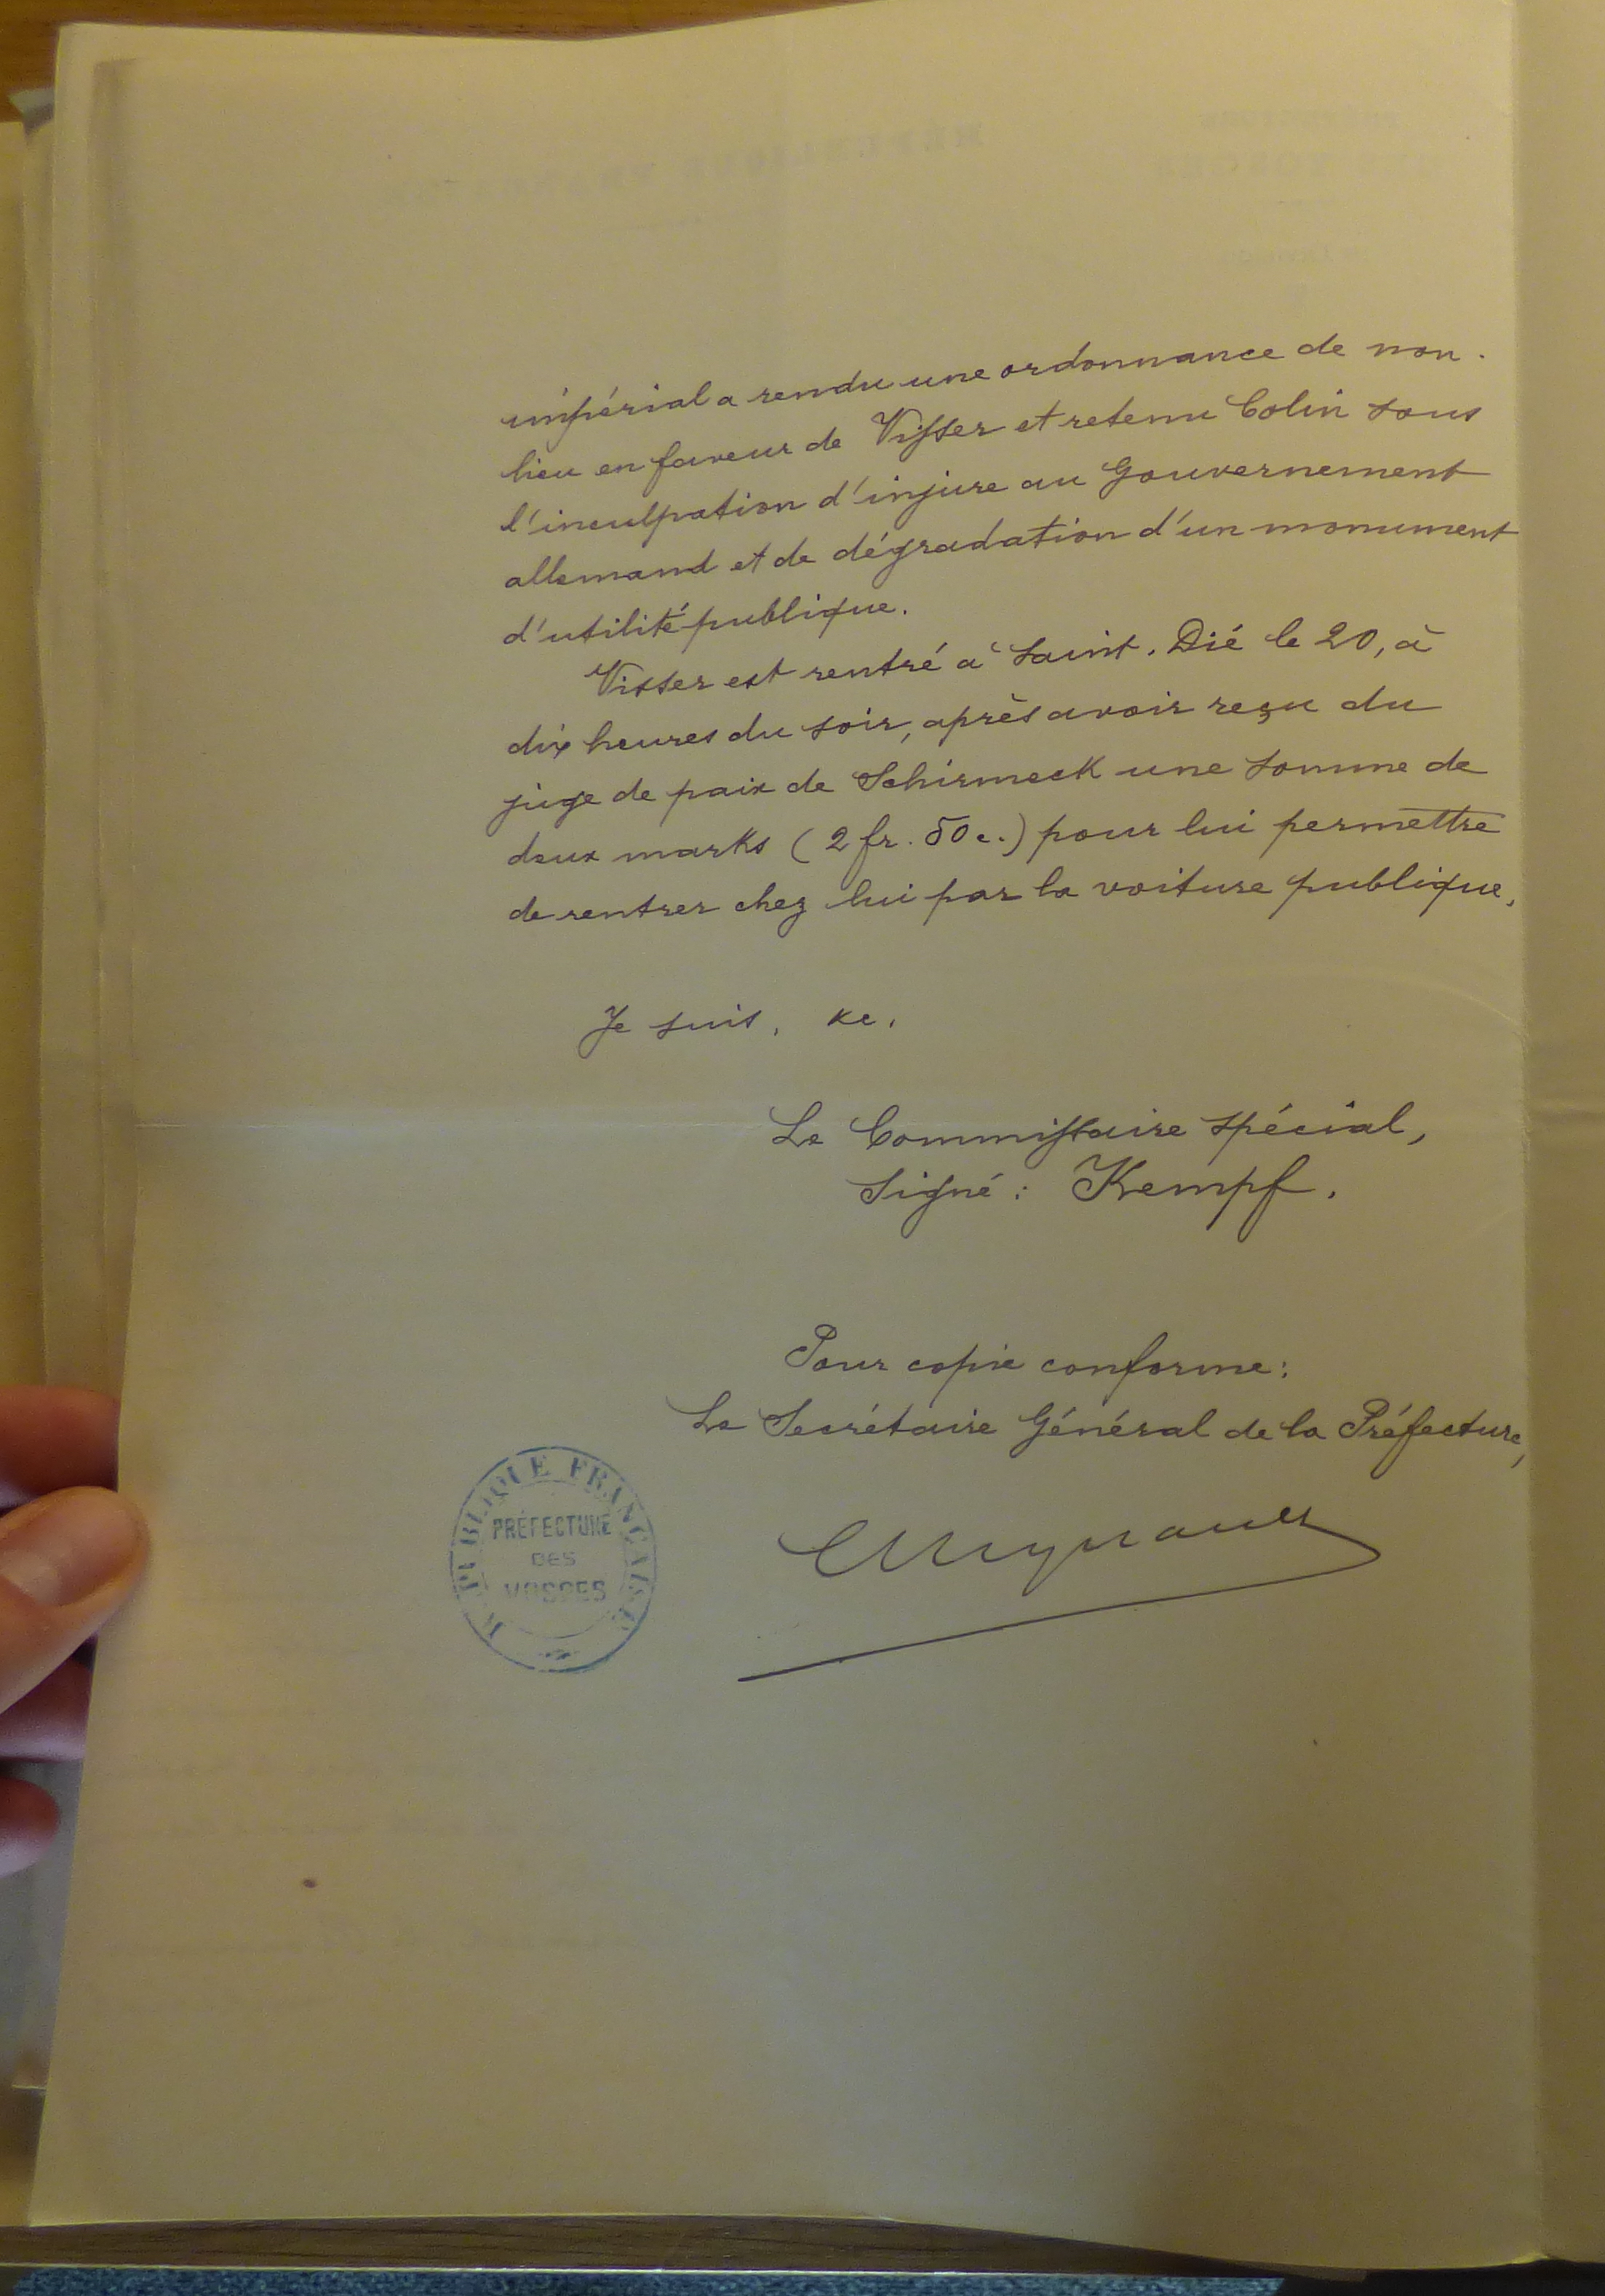 impérial a rendu une ordonnance de non-
lieu en faveur de Visser et retenu Colin sous
l'inculpation d'injure au Gouvernement
allemand et de dégradation d'un monument
d'utilité publique.
Visser est rentré à Saint-Dié le 20, à
dix heures du soir, après avoir reçu du
juge de paix de Schirmeck une somme de
deux marks (2 fr. 50 c.) pour lui permettre
de rentrer chez lui par la voiture publique.
Je suis, &c.
Le Commissaire spécial,
Signé: Kempf.
Pour copie conforme:
Le Secrétaire Général de la Préfecture,
RÉPUBLIQUE FRANÇAISE
PRÉFECTURE
DES
VOSGES